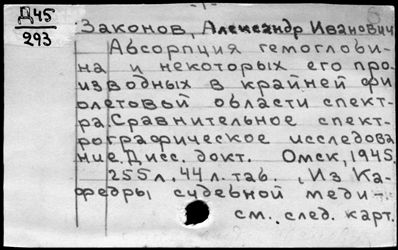 -1-
Д45
293
Законов, Александр Иванович
Абсорпция гемоглови-
на и некоторых его про-
изводных в крайней фи-
олетовой области спект-
ра. Сравнительное спект-
рографическое исследова
ние. Дисс. докт. Омск, 1945.
255 л., 44 л. таб. (Из Ка-
федры судебной меди-
см. след. карт.